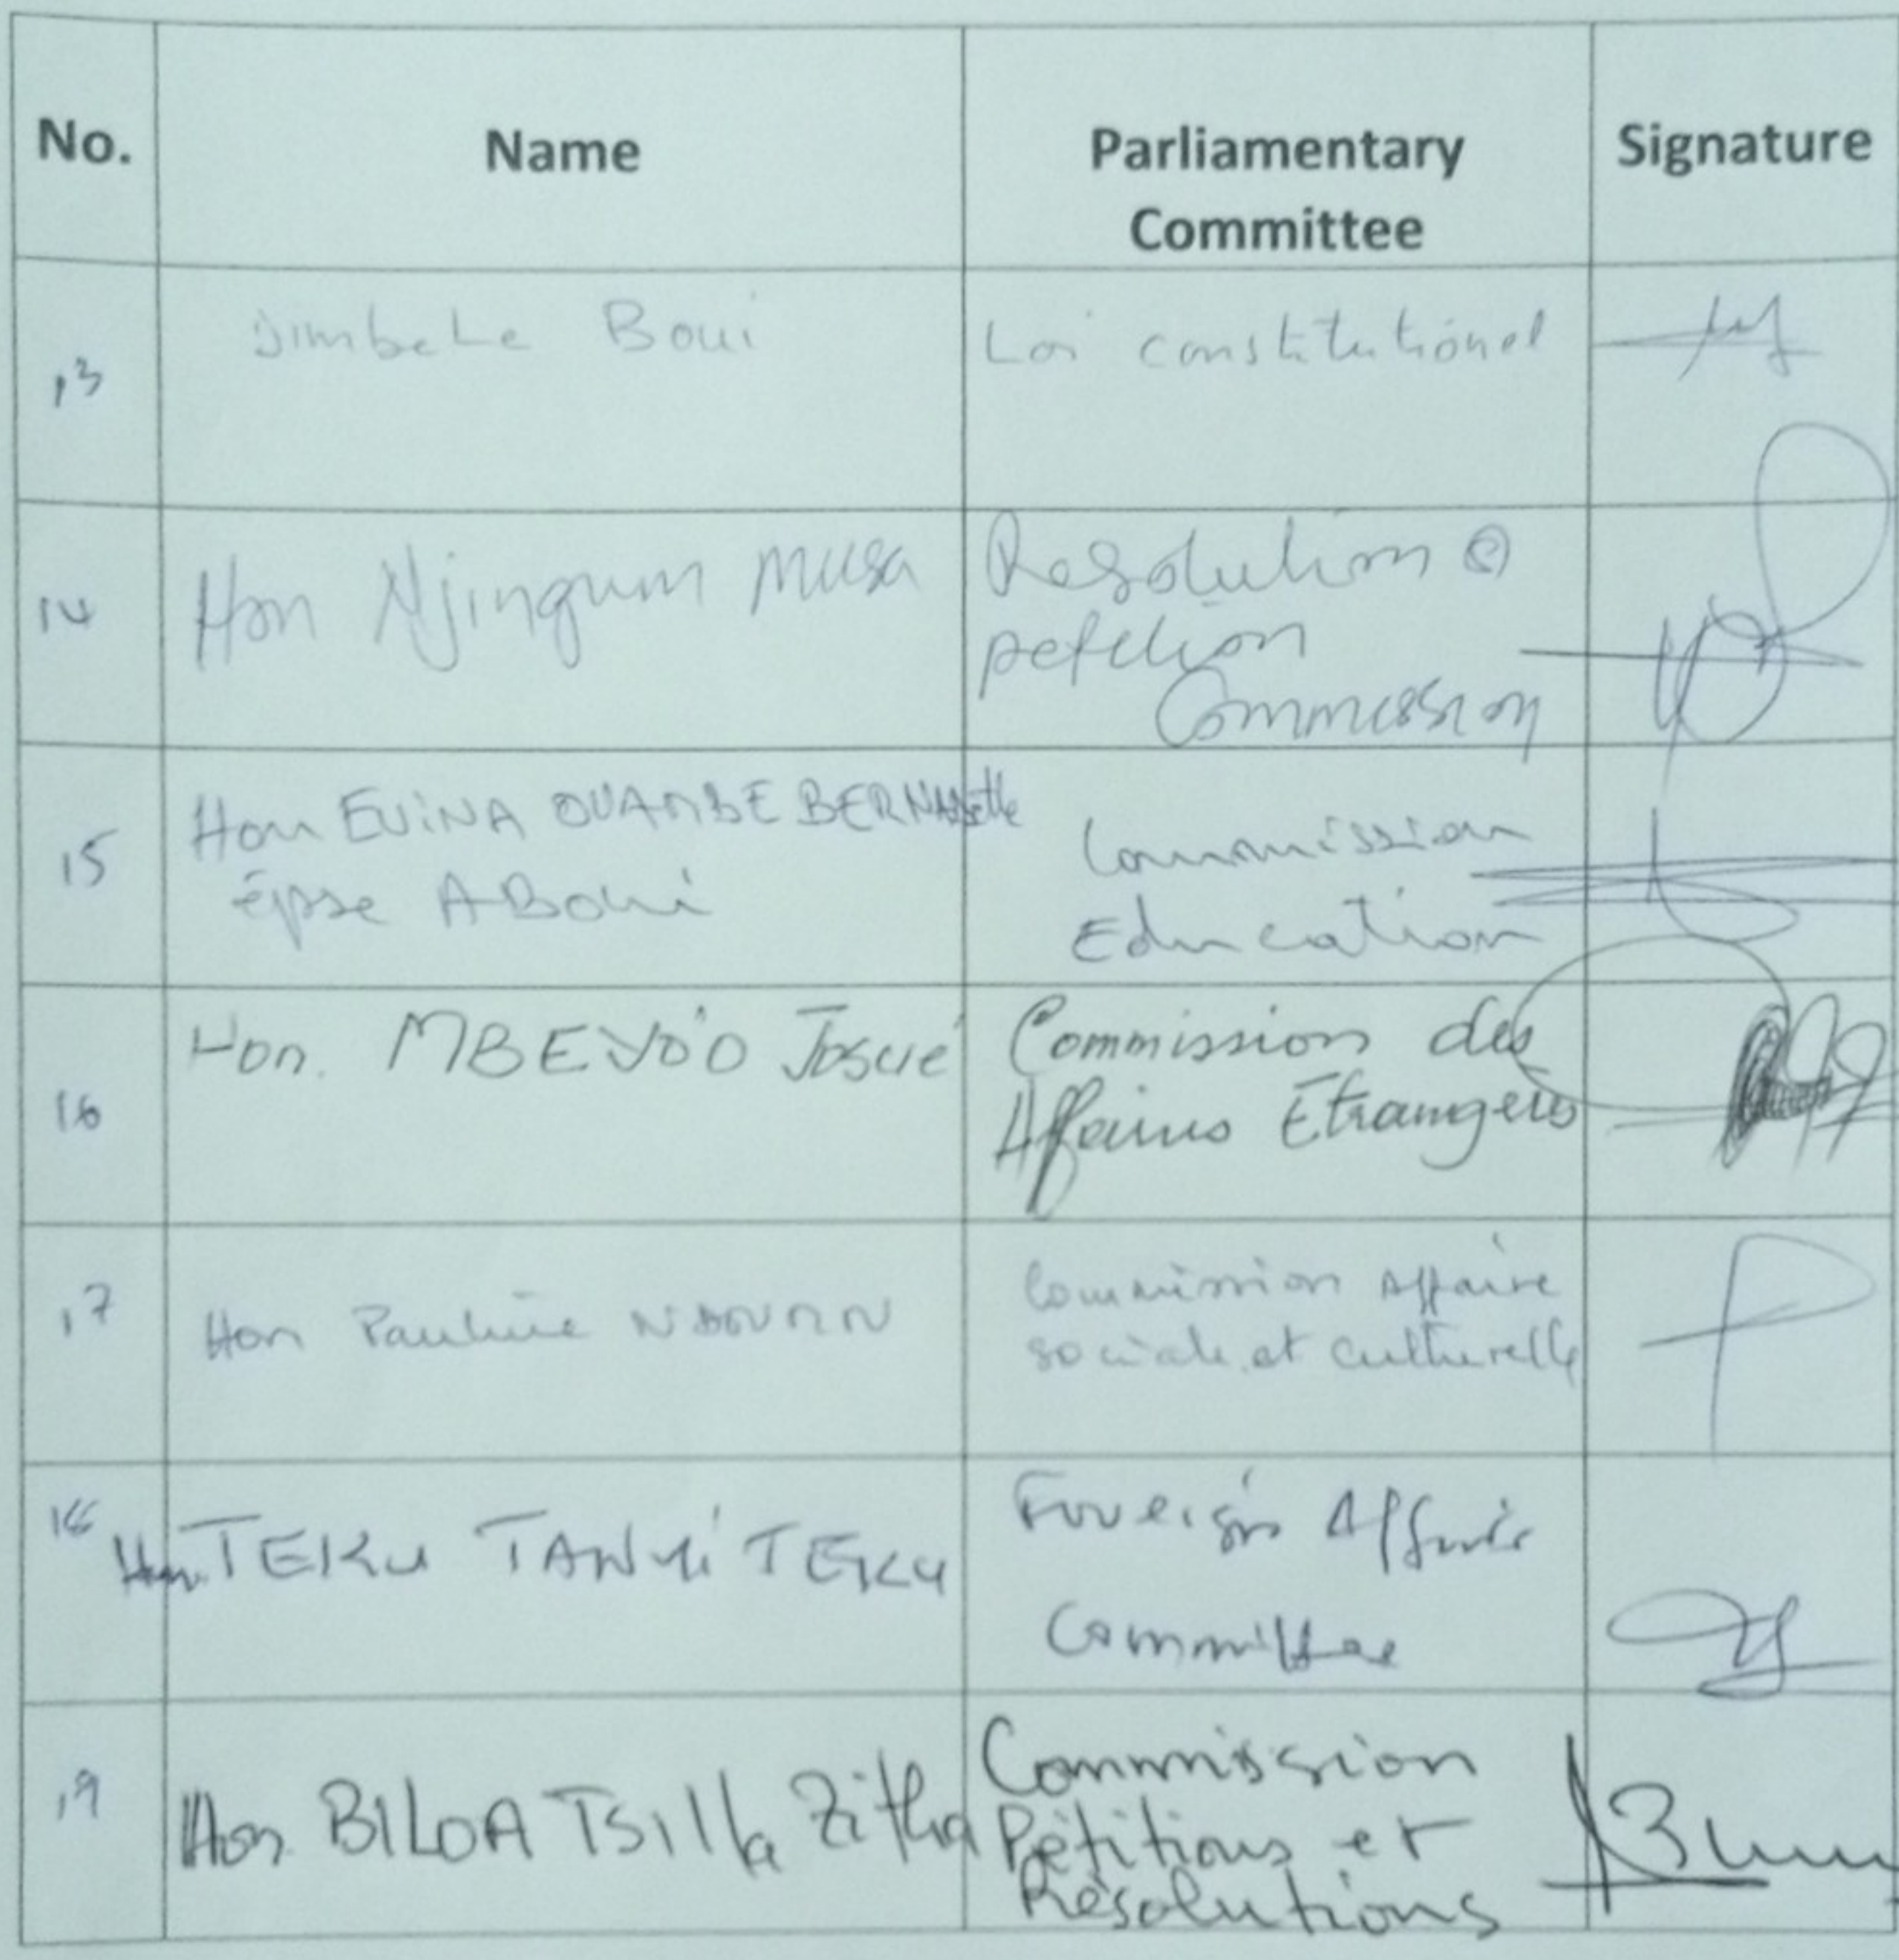 No. Name Parliamentary Signature
Committee
13 Boui Loi constitutionel
14 Hon Njingum Musa Resolution
petition
Commission
15 Hon EVINA OUAMBE BERNADette Commission
épse ABOUI Education
16 Hon. MBEYO'O Josué Commission des
Affaires Etrangères
17 Hon Pauline Commission Affaire
sociale et culturelle
18 Hon. TEKU TANYI TEKU Foreign Affairs
Committee
19 Hon BILOA TSILLA Zitha Commission
Pétitions et
Résolutions